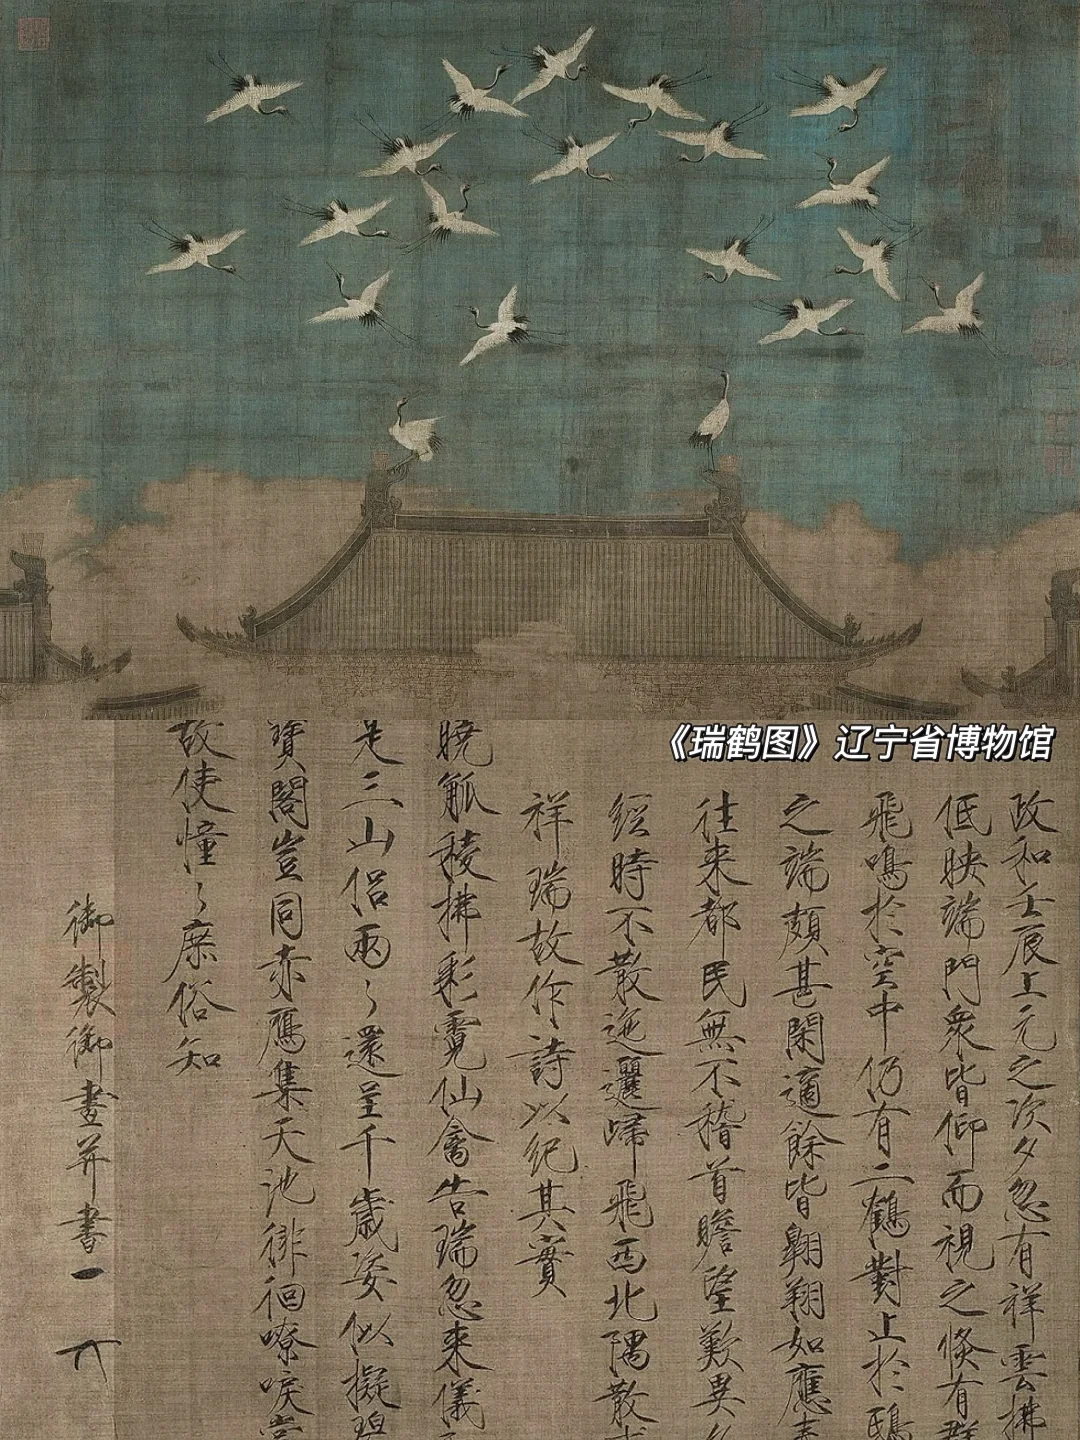 《瑞鹤图》辽宁省博物馆
政和壬辰上元之次夕忽有祥雲拂
低映端門衆皆仰而視之倏有群
飛鳴於空中仍有二鶴對止於鴟
之端頗甚閑適餘皆翱翔如應奏
往來都民無不稽首瞻望歎異久
經時不散迤邐歸飛西北隅散
祥瑞故作詩以紀其實
曉觚稜拂彩霓仙禽告瑞忽來儀
是三山侣兩々還呈千歲姿似擬碧
寶閣豈同赤鴈集天池徘徊嘹唳當
故使憧々庶俗知
御製御畫并書